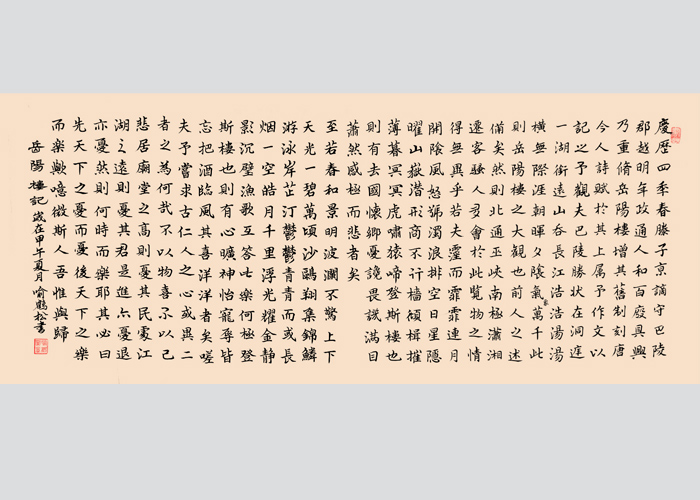 慶歷四季春滕子京謫守巴陵
郡越明年政通人和百廢具興
乃重脩岳陽樓增其舊制刻唐
今人詩賦於其上属予作文以
記之予觀夫巴陵勝狀在洞庭
一湖銜遠山吞長江浩浩湯湯
橫無際涯朝暉夕陰氣象萬千此
則岳陽樓之大觀也前人之述
備矣然則北通巫峽南極瀟湘
遷客騷人多會於此覽物之情
得無異乎若夫霪雨霏霏連月
開陰風怒號濁浪排空日星隱
曜山嶽潛形商不行檣傾楫摧
薄暮冥冥虎嘯猿啼登斯樓也
則有去國懷鄉憂讒畏譏滿目
蕭然感極而悲者矣
至若春和景明波瀾不驚上下
天光一碧萬頃沙鷗翔集錦鱗
游泳岸芷汀鬱鬱青青而或長
烟一空皓月千里浮光耀金靜
影沉璧漁歌互答此樂何極登
斯樓也則有心曠神怡寵辱皆
忘把酒臨風其喜洋洋者矣嗟
夫予嘗求古仁人之心或異二
者之為何哉不以物喜不以己
悲居廟堂之高則憂其民處江
湖之遠則憂其君是進亦憂退
亦憂然則何時而樂耶其必曰
先天下之憂而憂後天下之樂
而樂歟噫微斯人吾惟與歸
岳陽樓記 歲在甲午夏月喻鵬松書